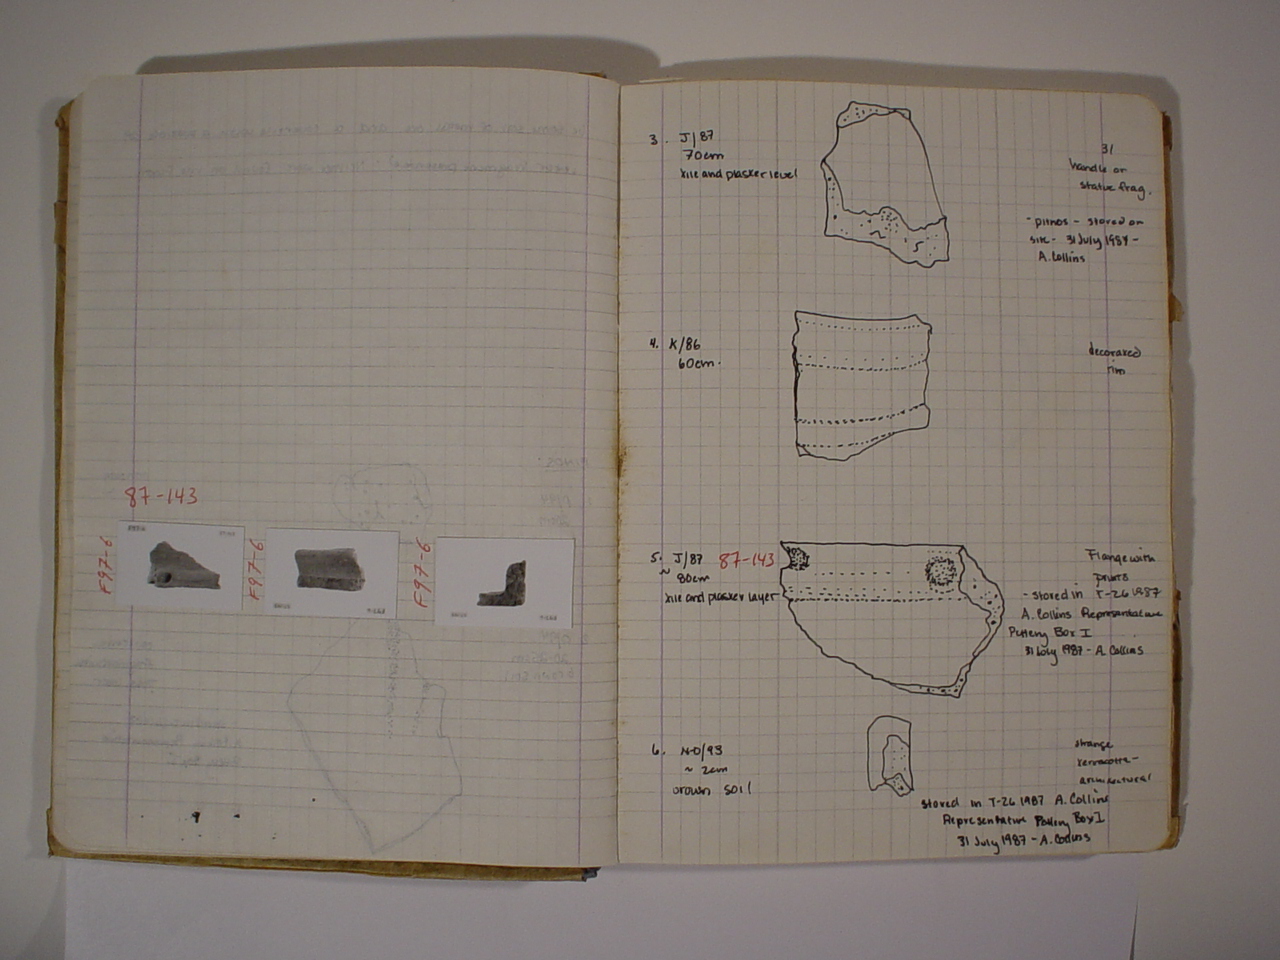 87-143
F97-6
F97-6
F97-6
31
3. J/87
70cm
tile and plaster level
handle or
statue frag.
- pithos - stored on
site - 31 July 1987 -
A. Collins
4. K/86
60cm.
decorated
rim
5. J/87 87-143
~ 80cm
tile and plaster layer
Flange with
prints
- stored in T-26 1987
A. Collins Representative
Pottery Box I
31 July 1987 - A. Collins
6. N-O/93
~ 2cm
brown soil
strange
terracotta -
architectural
stored in T-26 1987 A. Collins
Representative Pottery Box I
31 July 1987 - A. Collins